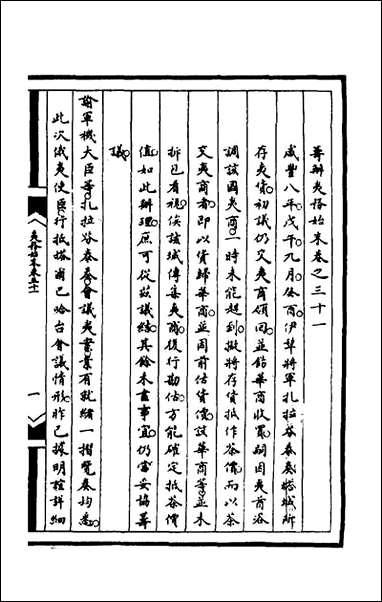 籌辦夷務始末卷之三十一
咸豐八年戊午九月癸酉伊犂將軍扎拉芬泰奏塔城所
存夷貨初議仍交夷商領回並飭華商收買嗣因夷酋洛
調該國夷商一時未能趕到擬將存貨抵作茶價而以茶
交夷商者即以貨歸華商並同前估貨價該華商等並未
拆包看視俟該城傳集夷商復行勘估方能確定抵茶價
值如此辦理庶可從茲議結其餘未盡事宜仍當妥協籌
議
諭軍機大臣等扎拉芬泰奏會議夷案業有就緒一摺覽奏均悉
此次俄夷使臣行抵塔爾巴哈台會議情形昨已據明誼詳細
夷務始末卷三十一
一